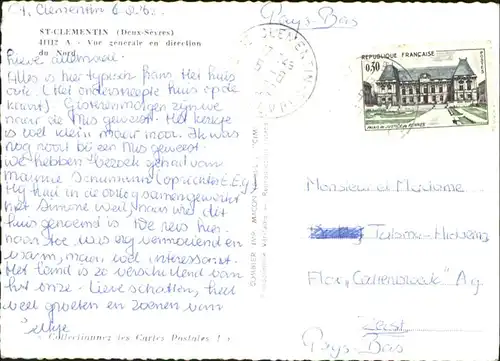 St. Clementin 6.8.62.
ST-CLEMENTIN (Deux-Sèvres)
41112 A - Vue générale en direction
du Nord
Lieve allemaal.
Alles is hier typisch frans. Het huis
ook. (Het onderstreepte huis op de
kaart) Gisterenmorgen zijn we
naar de Mis geweest. Het kerkje
is wel klein maar mooi. Ik was
nog nooit bij een Mis geweest.
We hebben bezoek gehad van
Maurice Schumann (oprichter E.E.G.)
Hij had in de oorlog samengewerkt
met Simone Weil, naar wie dit
huis genoemd is. De reis hier-
naar toe was erg vermoeiend en
warm, maar wel interessant.
Het land is zo verschillend van
het onze. Lieve schatten, heel
veel groeten en zoenen van
Collectionnez les Cartes Postales
Pays-Bas
ST CLEMENTIN
RÉPUBLIQUE FRANÇAISE
0,30
POSTES
PALAIS DE JUSTICE DE RENNES
COMBIER IMP. MACON
Monsieur et Madame
Flat
Zeist
Pays-Bas